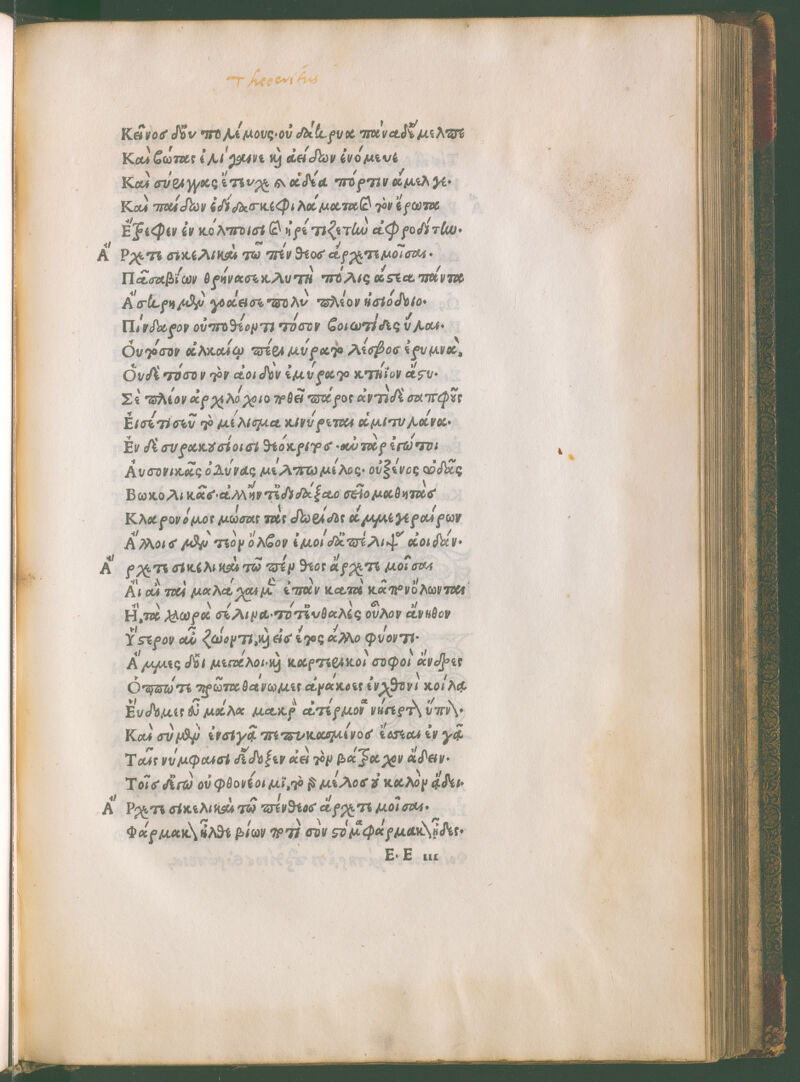 Theocritus
Κεῖνος δ' οὐ πολέμους· οὐ δάκρυα πᾶνα δ' ἔμελπε
Καὶ βώτας ἐλίγαινε καὶ ἀείδων ἐνόμευε
Καὶ σύριγγας ἔτευχε κ ἁδέα πόρτιν ἄμελγε·
Καὶ παίδων ἐδίδασκε φιλάματα καὶ τὸν ἔρωτα
Ἔτρεφεν ἐν κόλποισι καὶ ἠρέτιζε τὴν ἀφροδίτην·
Ἄ Ρχετε σικελικαὶ τῶ πένθεος ἄρχετε μοῖσαι·
Πᾶσα βίων θρήνασε κλυτὴ πόλις ἄστεα πάντα
Ἄσκρη μὲν γοάει σε πολὺ πλέον ἡσιόδοιο·
Πίνδαρον οὐ ποθέοντι τόσον βοιωτίδες ὕλαι·
Οὐ τόσον ἀλκαίῳ περιμύρατο λέσβος ἐρυμνὰ,
Οὐδὲ τόσον τὸν ἀοιδὸν ἐμύρατο κτήϊον ἄστυ·
Σὲ πλέον ἀρχιλόχοιο ποθεῖ πάρος ἀντὶ δὲ σαπφῦς
Εἰσέτι σεῦ τὸ μέλισμα κινύρεται ἁ μιτυλάνα·
Ἐν δὲ συρακουσίοισι θεόκριτος· αὐτὰρ ἐγώ τοι
Αὐσονικᾶς ὀδύνας μέλπω μέλος· οὐ ξένος ᾠδᾶς
Βωκολικᾶς· ἀλλ' ἥν τ' ἐδιδάξαο σεῖο μαθητὰς
Κλαρονόμος μώσας τὰς δωρίδος ἄμμε γεραίρων
Ἄλλοις μὲν τεὸν ὄλβον ἐμοὶ δ' ἀπέλιψας ἀοιδάν·
Ἄ ρχετε σικελικαὶ τῶ πένθεος ἄρχετε μοῖσαι
Αἲ αἲ ταὶ μαλάχαι μὲν ἐπὰν κατὰ κᾶπον ὄλωνται
Ἢ, τὰ χλωρὰ σέλινα· τό τ' εὐθαλὲς οὖλον ἄνηθον
Ὕστερον αὖ ζώοντι, καὶ εἰς ἔτος ἄλλο φύοντι·
Ἄμμες δ' οἱ μεγάλοι καὶ καρτερικοὶ σοφοὶ ἄνδρες
Ὁππότε πρῶτα θάνωμες ἀνάκοες ἐν χθονὶ κοίλᾳ
Εὕδομες εὖ μάλα μακρὸν ἀτέρμονα νήγρετον ὕπνον·
Καὶ σὺ μὲν ἐν σιγᾷ πεπυκασμένος ἔσσεαι ἐν γᾷ
Ταῖς νύμφαισι δ' ἔδοξεν ἀεὶ τὸν βάτραχον ᾄδειν·
Τοῖς δ' ἐγὼ οὐ φθονέοιμι, τὸ γὰρ μέλος οὐ καλὸν ᾄδει·
Ἄ Ρχετε σικελικαὶ τῶ πένθεος ἄρχετε μοῖσαι·
Φάρμακον ἦλθε βίων ποτὶ σὸν στόμα φάρμακον ἦδες·
Ε· Ε iii